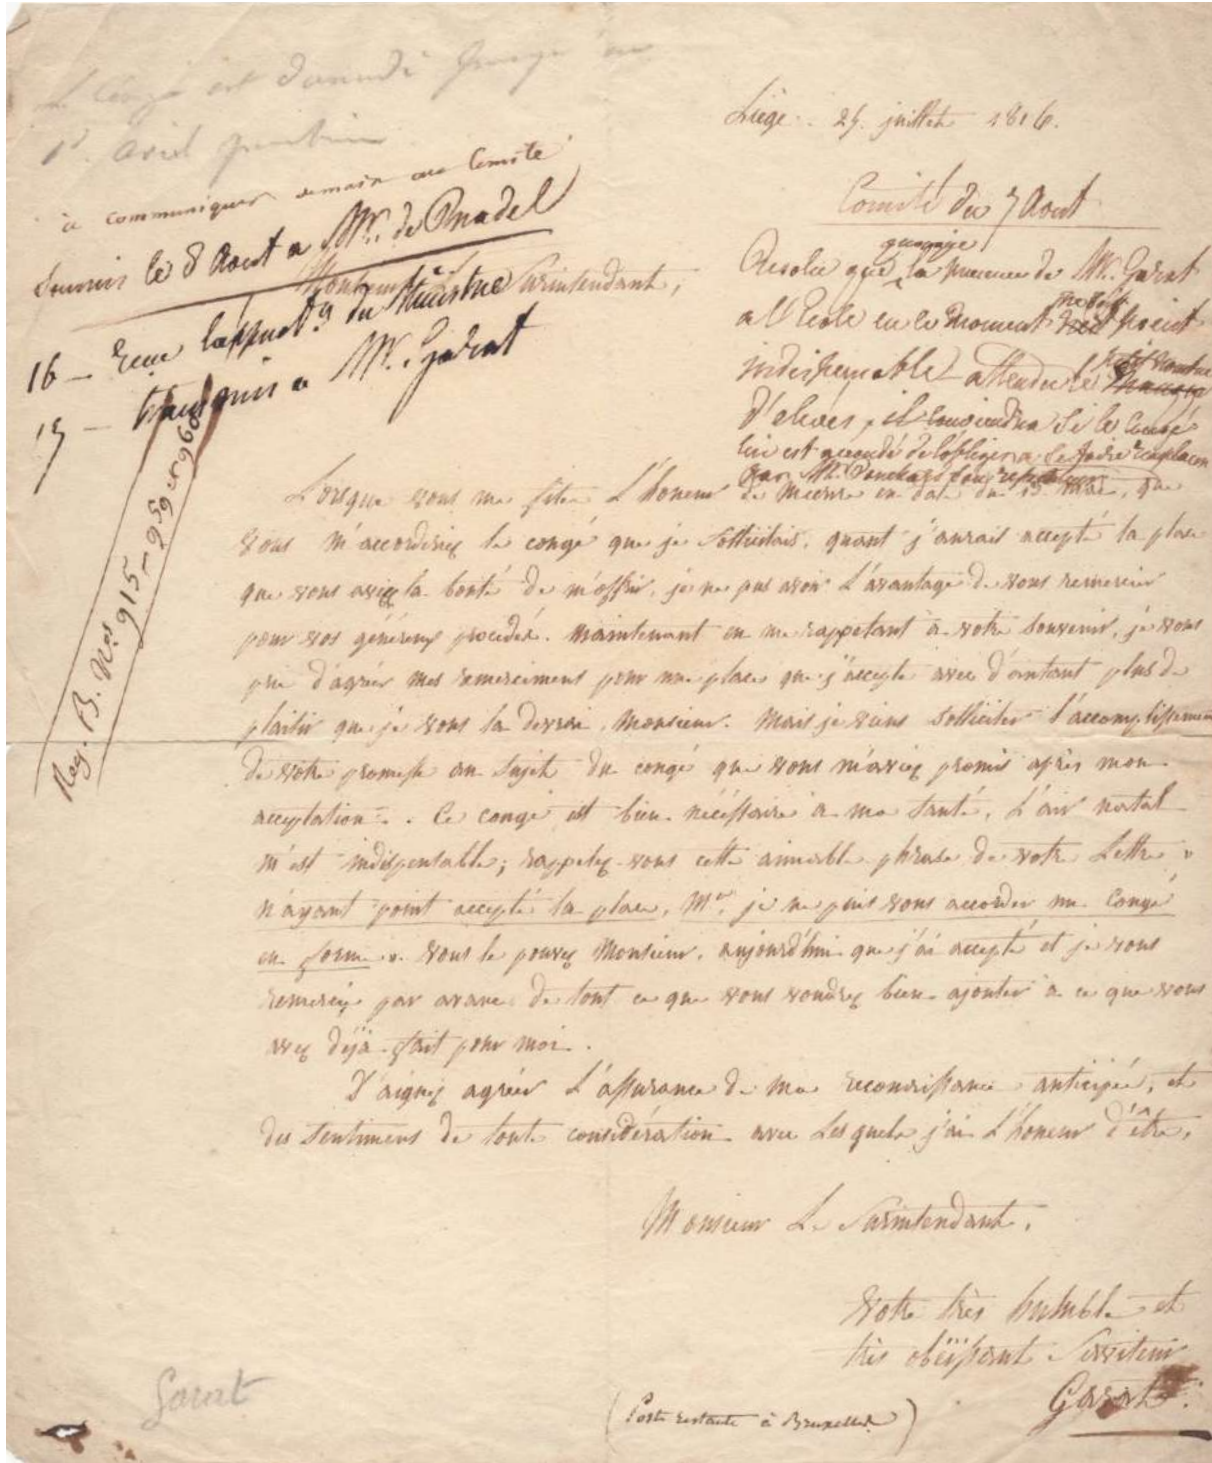 Le Congé est accordé jusqu'au
1er. avril prochain
à communiquer demain au Comité
le 8 Aout a Mr. de Pradel
16 — du Ministre
17 — transmis a Mr. Garat
Reg. B. Nos 915 — 959 et 960
Liége. 25. juillet 1816.
Comité du 7 Aout
quoique
que la presence de Mr. Garat
a l'Ecole en ce moment ne soit point
indispensable attendu le petit nombre
d'élèves, il conviendra si le Congé
lui est accordé de l'obliger a se faire remplacer
par Mr. Ponchard son répétiteur
Monsieur Le Surintendant,
Lorsque vous me fites L'honeur de m'ecrire en date du 13 mai, que
vous m'accorderiez le congé que je sollicitais, quant j'aurais accepté la place
que vous aviez la bonté de m'offrir, je ne pus avoir L'avantage de vous remercier
pour vos généreux procédés. Maintenant en me rappelant à votre souvenir, je vous
prie d'agréer mes remerciments pour une place que j'accepte avec d'autant plus de
plaisir que je vous la devrai, Monsieur. Mais je viens solliciter l'accomplissement
de votre promesse au sujet du congé que vous m'aviez promis après mon
acceptation. Ce congé est bien nécessaire à ma santé, L'air natal
m'est indispensable; rappelez-vous cette aimable phrase de votre Lettre "
n'ayant point accepté la place, Mr. je ne puis vous accorder un Congé
en forme ". vous le pouvez Monsieur, aujourd'hui que j'ai accepté et je vous
remercie par avance de tout ce que vous voudrez bien ajouter à ce que vous
avez déjà fait pour moi.
D'aignez agréer L'assurance de ma reconnaissance anticipée, et
des sentimens de toute considération avec Lesquels j'ai L'honeur d'être,
Monsieur Le Surintendant,
Votre très humble et
très obéissant Serviteur
Garat.
(Poste restante à Bruxelles)
Garat